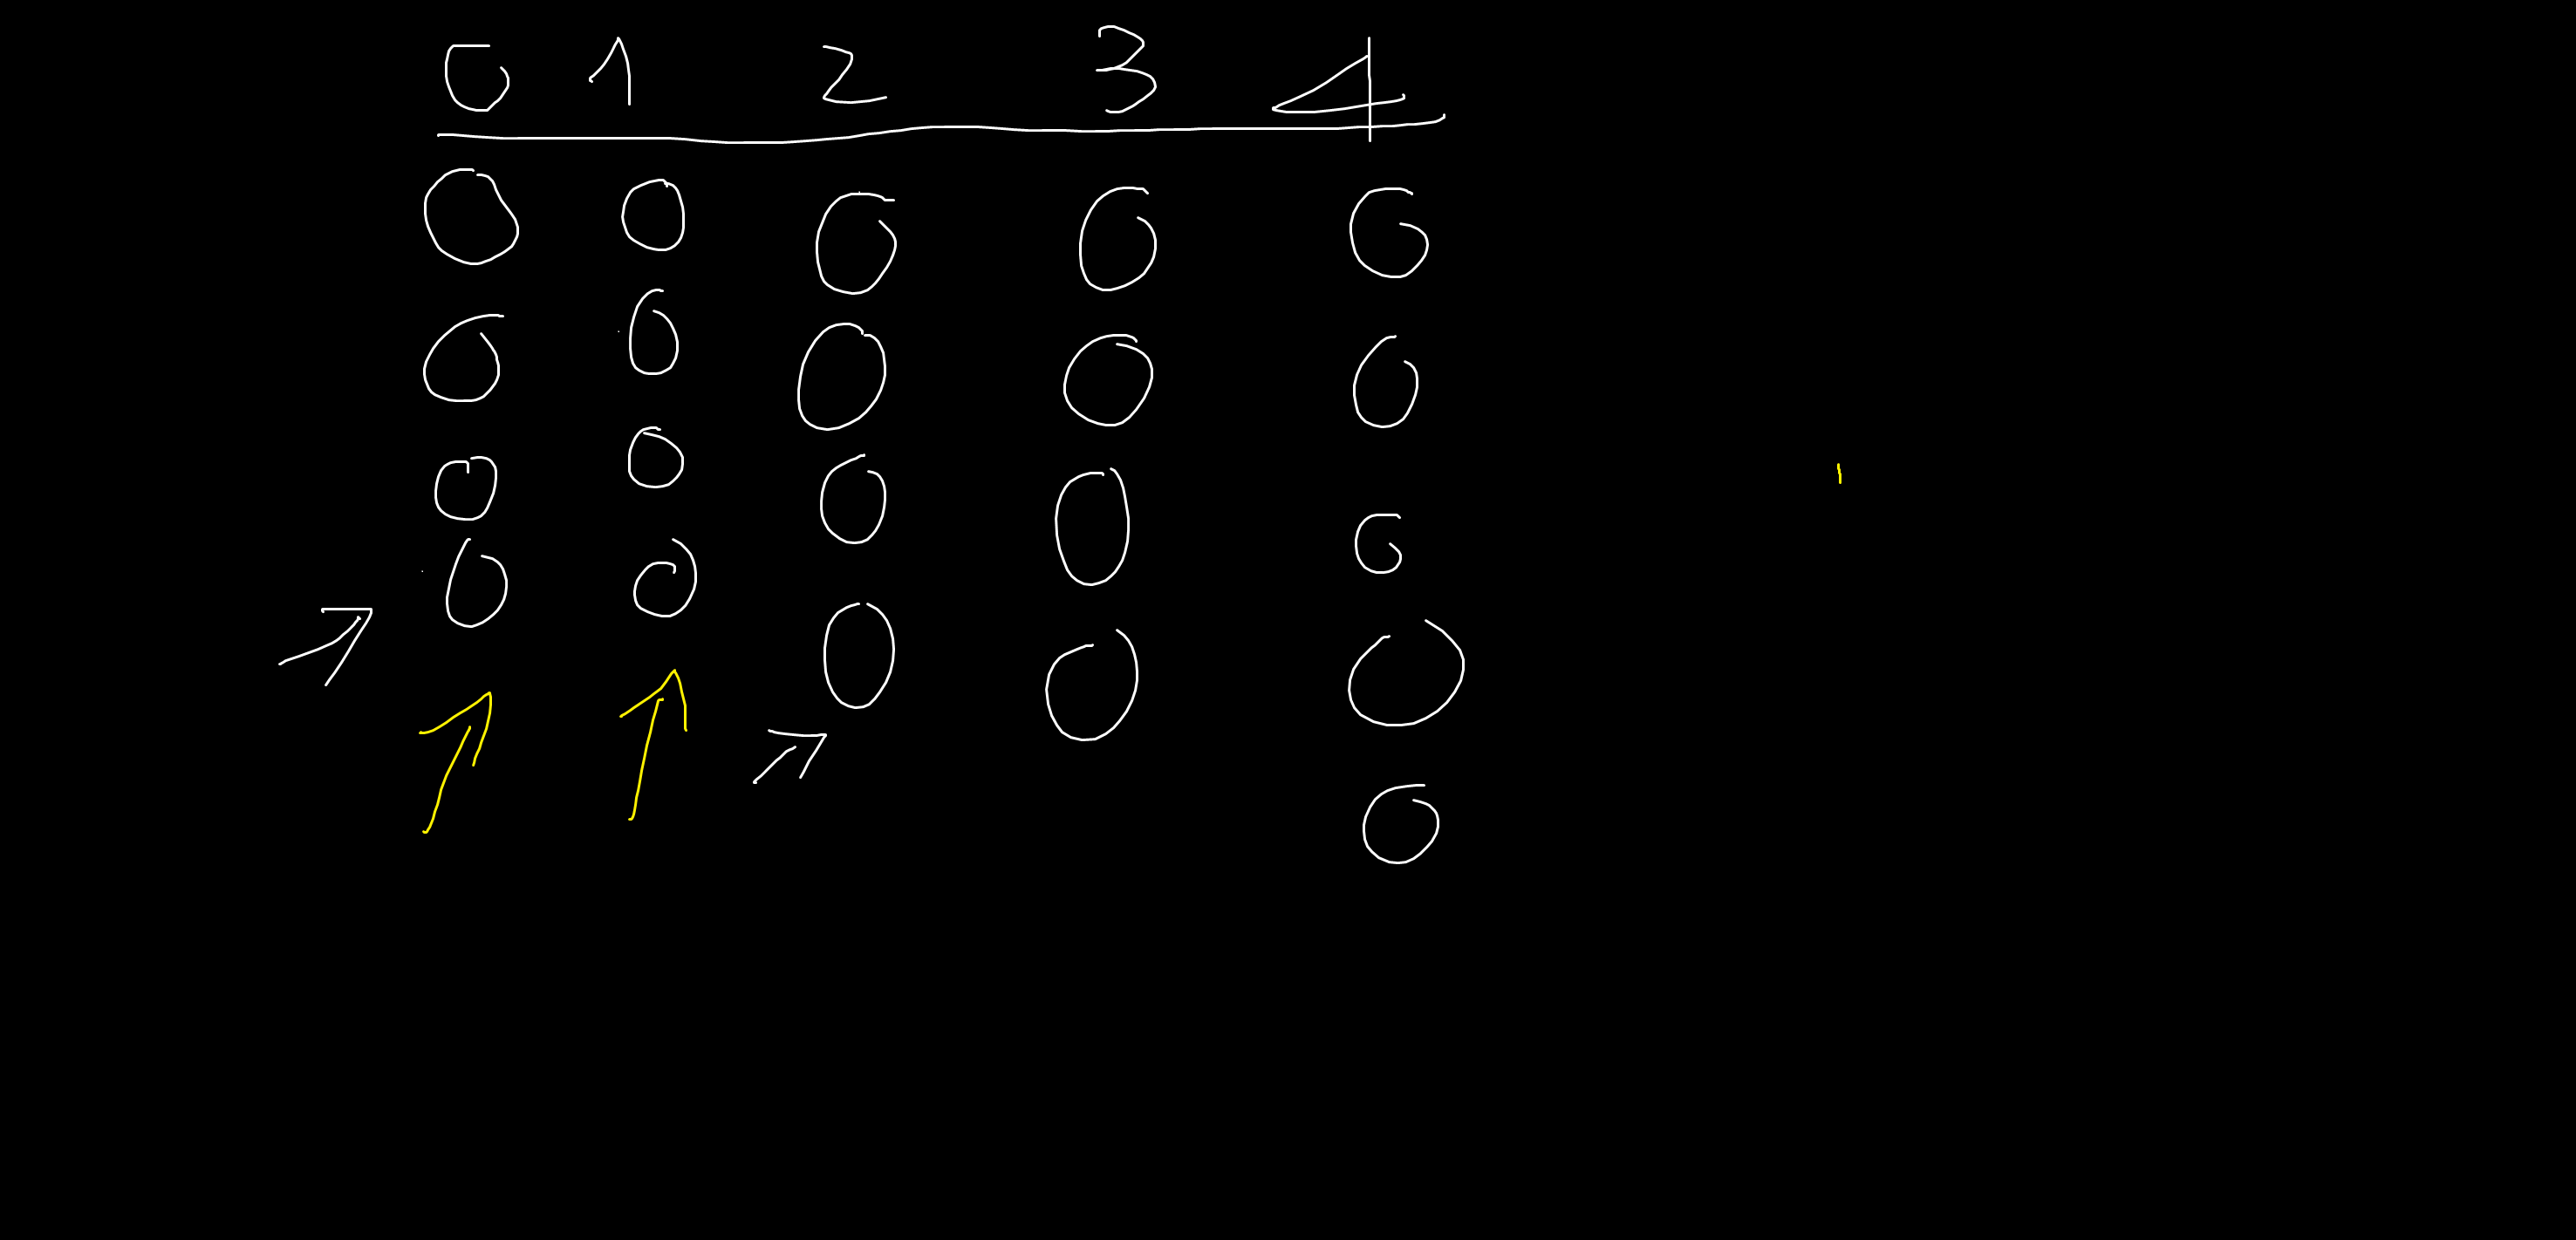 0 1 2 3 4
0 0 0 0 0
0 0 0 0 0
0 0 0 0 0
0 0 0 0 0
0